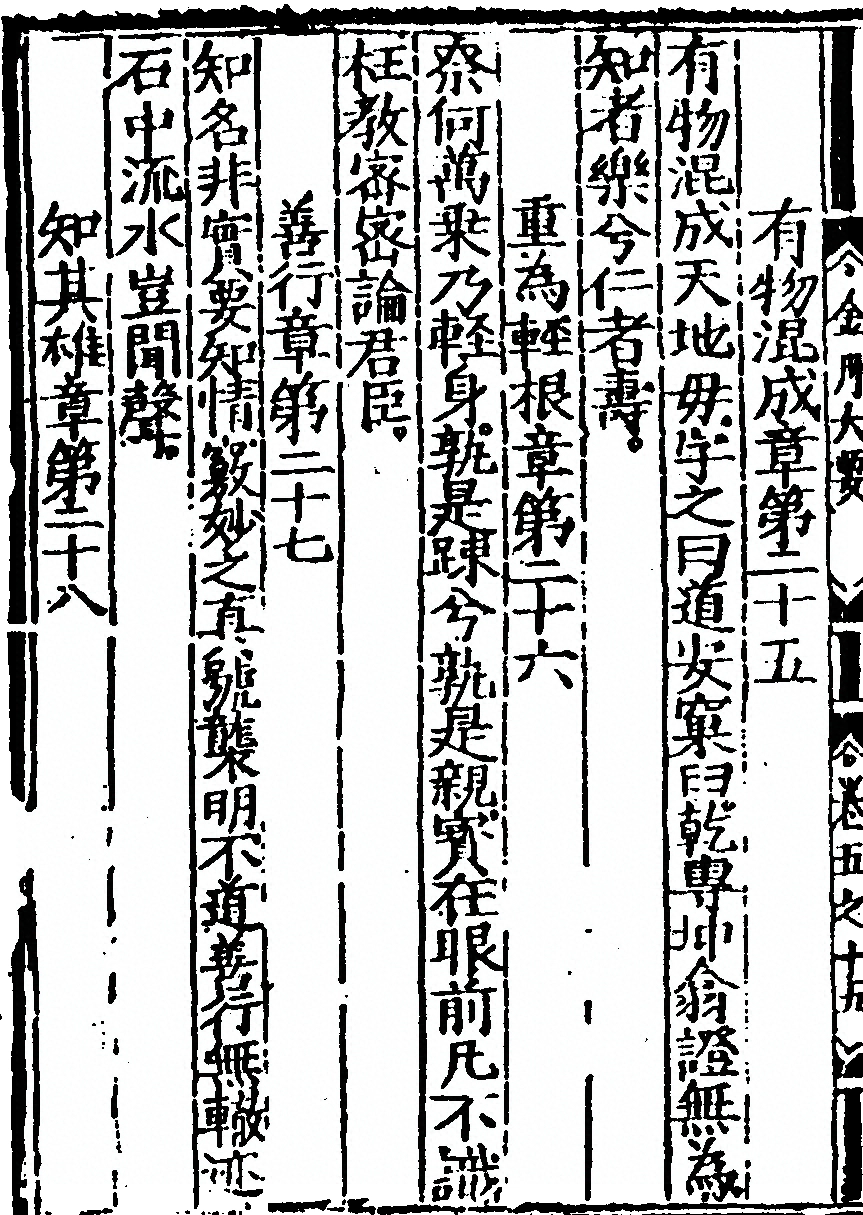 金門大要
卷五之十九
有物混成章第二十五
有物混成天地毋字之曰道岌窮臼乾專坤翕證無為
知者樂兮仁者壽
重為輕根章第二十六
柰何萬乗乃輊身孰是踈兮孰是親寳在眼前凡不識
枉教宻宻論君臣
善行章第二十七
知名非實要知情竅妙之真號襲明不道善行無轍迹
石中流水豈聞聲
知其雄章第二十八